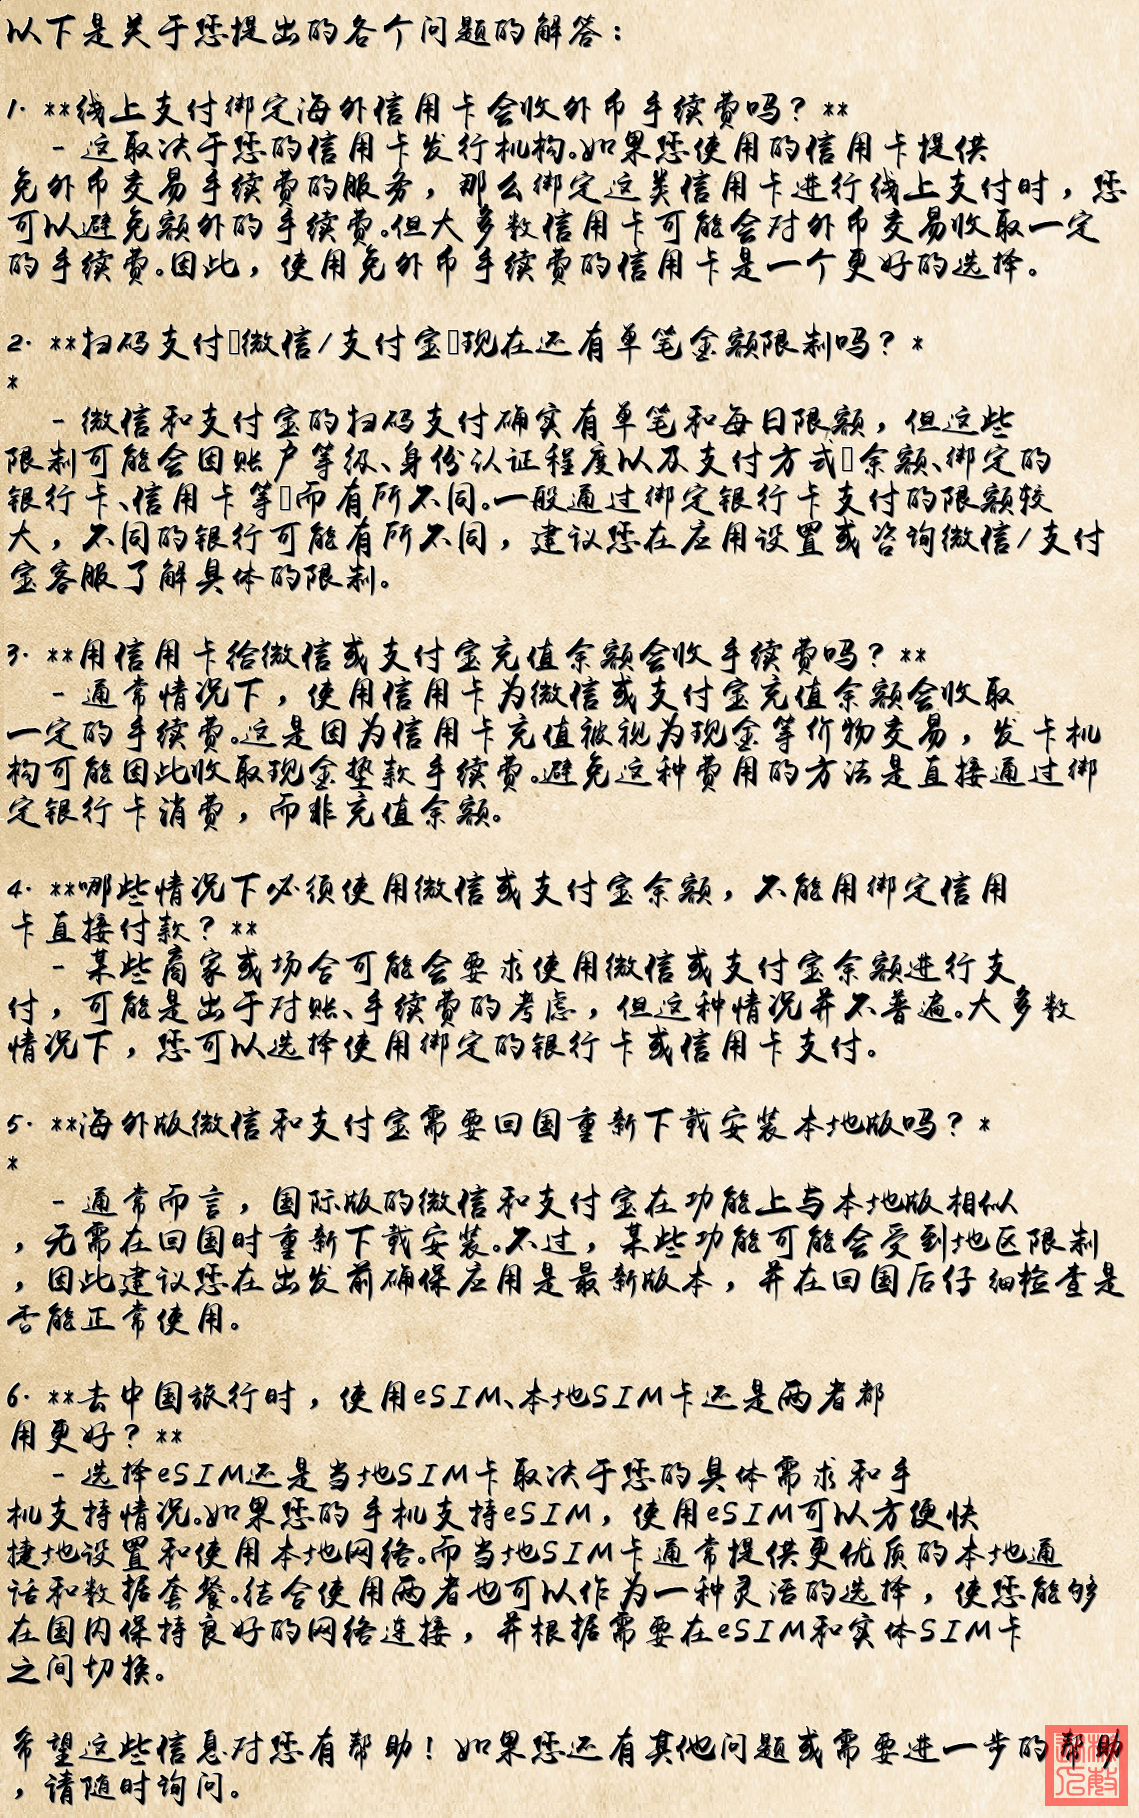 以下是关于您提出的各个问题的解答：
1. **线上支付绑定海外信用卡会收外币手续费吗？**
- 这取决于您的信用卡发行机构。如果您使用的信用卡提供
免外币交易手续费的服务，那么绑定这类信用卡进行线上支付时，您
可以避免额外的手续费。但大多数信用卡可能会对外币交易收取一定
的手续费。因此，使用免外币手续费的信用卡是一个更好的选择。
2. **扫码支付▯微信/支付宝▯现在还有单笔金额限制吗？*
*
- 微信和支付宝的扫码支付确实有单笔和每日限额，但这些
限制可能会因账户等级、身份认证程度以及支付方式▯余额、绑定的
银行卡、信用卡等▯而有所不同。一般通过绑定银行卡支付的限额较
大，不同的银行可能有所不同，建议您在应用设置或咨询微信/支付
宝客服了解具体的限制。
3. **用信用卡给微信或支付宝充值余额会收手续费吗？**
- 通常情况下，使用信用卡为微信或支付宝充值余额会收取
一定的手续费。这是因为信用卡充值被视为现金等价物交易，发卡机
构可能因此收取现金垫款手续费。避免这种费用的方法是直接通过绑
定银行卡消费，而非充值余额。
4. **哪些情况下必须使用微信或支付宝余额，不能用绑定信用
卡直接付款？**
- 某些商家或场合可能会要求使用微信或支付宝余额进行支
付，可能是出于对账、手续费的考虑，但这种情况并不普遍。大多数
情况下，您可以选择使用绑定的银行卡或信用卡支付。
5. **海外版微信和支付宝需要回国重新下载安装本地版吗？*
*
- 通常而言，国际版的微信和支付宝在功能上与本地版相似
，无需在回国时重新下载安装。不过，某些功能可能会受到地区限制
，因此建议您在出发前确保应用是最新版本，并在回国后仔细检查是
否能正常使用。
6. **去中国旅行时，使用eSIM、本地SIM卡还是两者都
用更好？**
- 选择eSIM还是当地SIM卡取决于您的具体需求和手
机支持情况。如果您的手机支持eSIM，使用eSIM可以方便快
捷地设置和使用本地网络。而当地SIM卡通常提供更优质的本地通
话和数据套餐。结合使用两者也可以作为一种灵活的选择，使您能够
在国内保持良好的网络连接，并根据需要在eSIM和实体SIM卡
之间切换。
希望这些信息对您有帮助！如果您还有其他问题或需要进一步的帮助
，请随时询问。